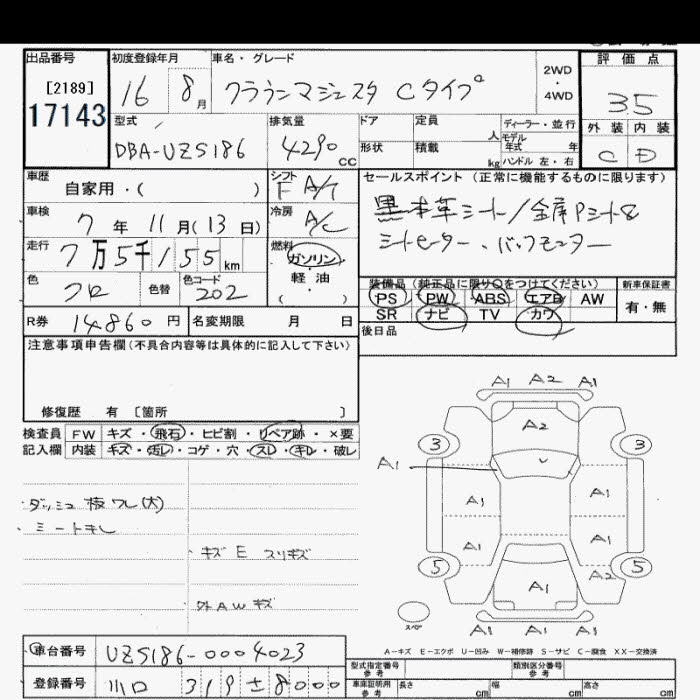 出品番号 初度登録年月 車名・グレード 評価点
[2189]
17143
16 8月 クラウンマジェスタ Cタイプ 2WD・4WD 35
型式 排気量 ドア 定員 人 ディーラー・並行 外装 内装
モデル年式 年
DBA-UZS186 4290cc 形状 積載 kg ハンドル 左・右 C D
車歴 自家用・( ) シフト F A/T セールスポイント(正常に機能するものに限ります)
車検 7年 11月(13日) 冷房 A/C 黒本革シート/全席Pシート&
走行 7万5千155km 燃料 ガソリン・軽油・( ) シートヒーター、バックモニター
色 クロ 色替 色コード 202 装備品(純正品に限り○をつけてください) 新車保証書
PS PW ABS エアB AW 有・無
R券 14860円 名変期限 月 日 SR ナビ TV カワ
後日品
注意事項申告欄(不具合内容等は具体的に記入して下さい)
修復歴 有 [箇所 ]
検査員 FW キズ・飛石・ヒビ割・リペア跡・×要
記入欄 内装 キズ・汚レ・コゲ・穴・スレ・キレ・破レ
・ダッシュ板ワレ(大)
・シートキレ
・キズ E スリキズ
外AWキズ
A1 A2 A1
A2
3 3
A1
A1 A1
A1 A1
5 A2 5
A1
スペア A1 A1 A1
A-キズ E-エクボ U-凹み W-補修跡 S-サビ C-腐食 XX-交換済
車台番号 UZS186-0004023 型式指定番号 参考 類別区分番号 参考
登録番号 川口 319 も8000 車庫証明用 参考 長さ cm 幅 cm 高さ cm